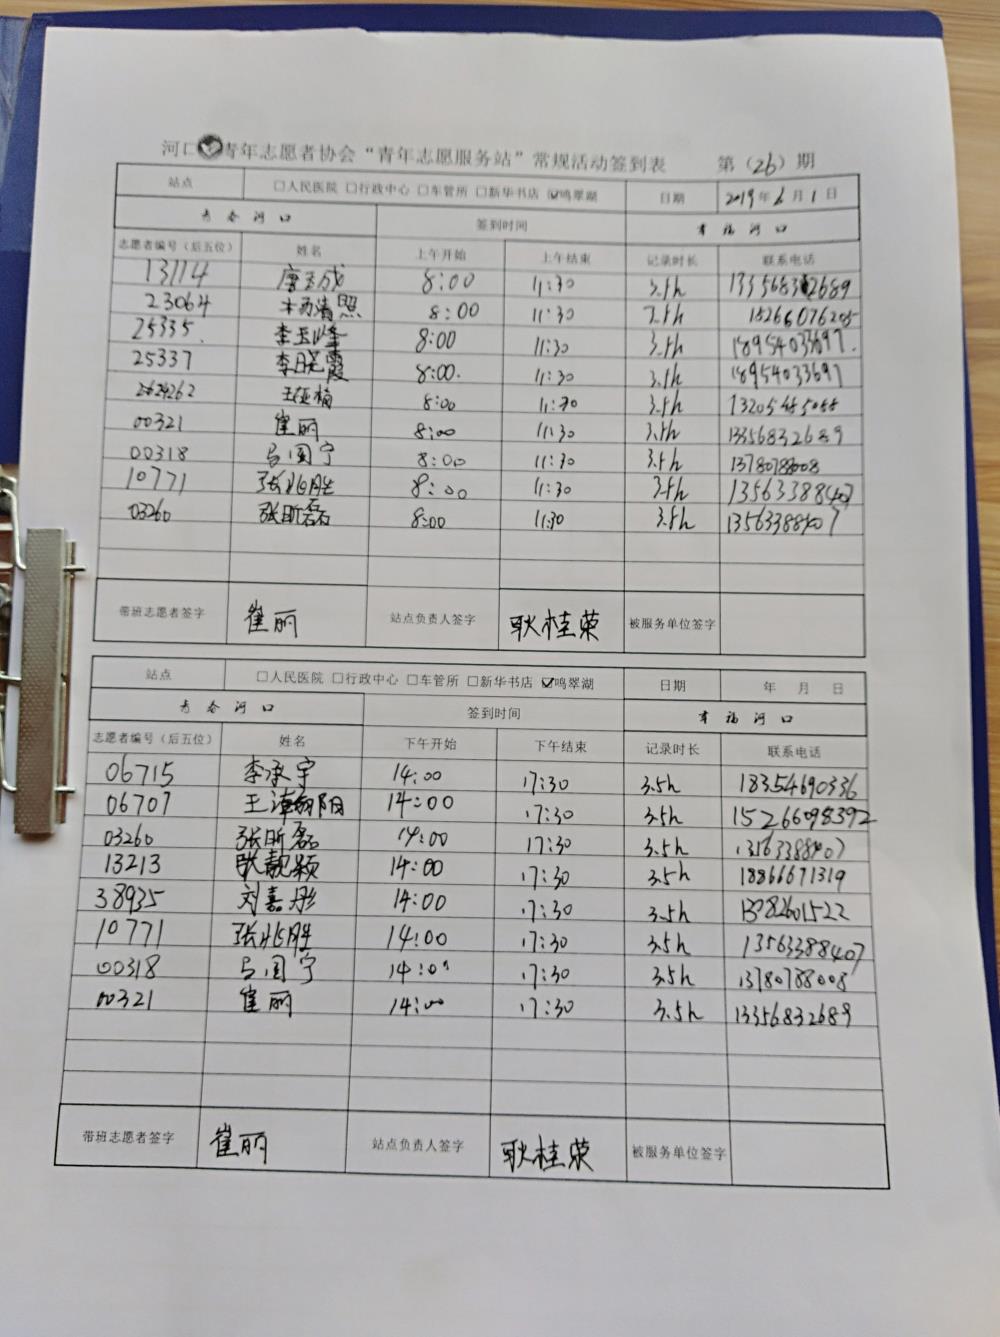 河口青年志愿者协会“青年志愿服务站”常规活动签到表 第（26）期
站点 □人民医院 □行政中心 □车管所 □新华书店 ☑鸣翠湖 日期 2019年6月1日
青春河口 签到时间 幸福河口
志愿者编号（后五位） 姓名 上午开始 上午结束 记录时长 联系电话
13114 唐玉成 8:00 11:30 3.5h
23064 8:00 11:30 3.5h 15266076205
25335 李玉峰 8:00 11:30 3.5h 18954033697
25337 李晓霞 8:00 11:30 3.5h 18954033697
王亚楠 8:00 11:30 3.5h
00321 崔丽 8:00 11:30 3.5h 13356832689
00318 吕国宁 8:00 11:30 3.5h 13780788008
10771 张兆胜 8:00 11:30 3.5h 13563388407
03260 张昕磊 8:00 11:30 3.5h 13563388407
带班志愿者签字 崔丽 站点负责人签字 耿桂荣 被服务单位签字
站点 □人民医院 □行政中心 □车管所 □新华书店 ☑鸣翠湖 日期 年 月 日
青春河口 签到时间 幸福河口
志愿者编号（后五位） 姓名 下午开始 下午结束 记录时长 联系电话
06715 李承宇 14:00 17:30 3.5h 18354690336
06707 14:00 17:30 3.5h 15266098392
03260 张昕磊 14:00 17:30 3.5h 13563388407
13213 耿靓颖 14:00 17:30 3.5h 18866671319
38935 刘嘉彤 14:00 17:30 3.5h 13082601522
10771 张兆胜 14:00 17:30 3.5h 13563388407
00318 吕国宁 14:00 17:30 3.5h 13780788008
00321 崔丽 14:00 17:30 3.5h 13356832689
带班志愿者签字 崔丽 站点负责人签字 耿桂荣 被服务单位签字